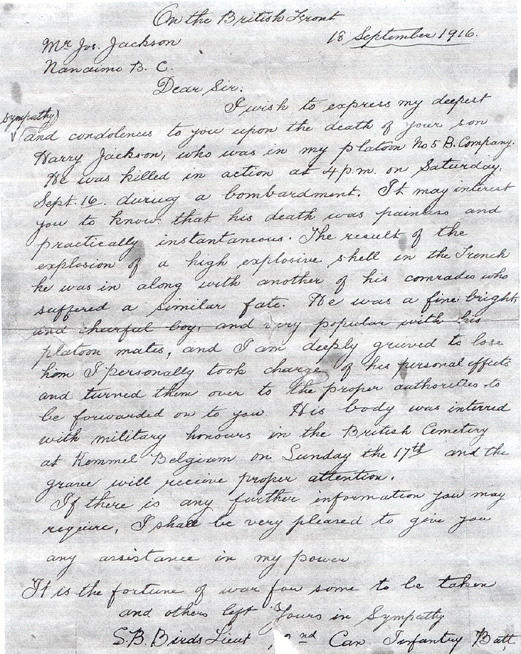 On the British Front
Mr Jos. Jackson 18 September 1916.
Nanaimo B. C.
Dear Sir.
I wish to express my deepest
sympathy
and condolences to you upon the death of your son
Harry Jackson, who was in my platoon No 5 B. Company.
He was killed in action at 4 p.m. on Saturday.
Sept. 16. during a bombardment. It may interest
you to know that his death was painless and
practically instantaneous. The result of the
explosion of a high explosive shell in the Trench
he was in along with another of his comrades who
suffered a similar fate. He was a fine bright
and chearful boy, and very popular with his
platoon mates, and I am deeply grieved to lose
him I personally took charge of his personal effects
and turned them over to the proper authorities to
be forwarded on to you His body was interred
with military honours in the British Cemetery
at Kemmel Belgium on Sunday the 17th and the
grave will receive proper attention.
If there is any further information you may
require, I shall be very pleased to give you
any assistance in my power
It is the fortune of war for some to be taken
and others left Yours in Sympathy
S. B. Birds Lieut 2nd Can Infantry Batt